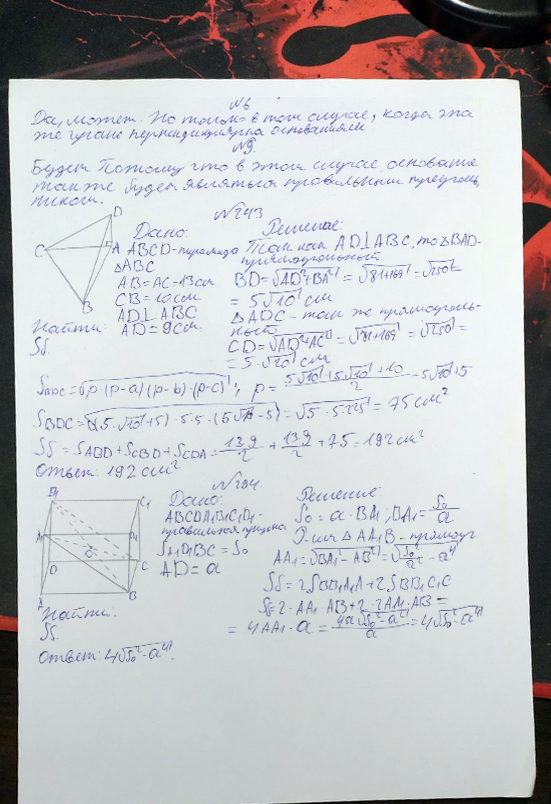 №6
Да, может. Но только в том случае, когда эта
же грань перпендикулярна основаниям
№9.
Будет. Потому что в этом случае основание
также будет являться правильным треуголь
ником.
№243
D
C
A
B
Дано:
ABCD-пирамида
△ABC
AB=AC=13см
CB=10см
AD⊥ABC
AD=9см
Найти:
Sб.
Решение:
Так как AD⊥ABC, то △BAD-
прямоугольный
BD=√AD²+BA²=√81+169=√250=
=5√10 см
△ADC - так же прямоуголь-
ный
CD=√AD²+AC²=√81+169=√250=
=5·√10 см
S =√p·(p-a)(p-b)·(p-c); p= 5√10+5√10+10/2 =5√10+5
SBDC=√(5·√10+5)·5·5·(5√10-5)=√5·5·225=75см²
Sб=SABD+SCBD+SCDA=13·9/2+13·9/2+75=192см²
Ответ: 192см²
B1
C1
A1
D1
D
C
A
B
Дано:
ABCDA1B1C1D1-
правильная призма
SA1D1BC=S0
AD=a
Найти:
Sб.
Решение:
S0=a·BA1; BA1=S0/a
△AA1B-прямоуг
AA1=√BA1²-AB²=√S0²/a²-a²
Sб=2SBB1A1A+2SBB1C1C
Sб=2·AA1·AB+2·2AA1·AB=
=4AA1·a=4a√S0²-a⁴/a=4√S0²-a⁴
Ответ: 4√S0²-a⁴.